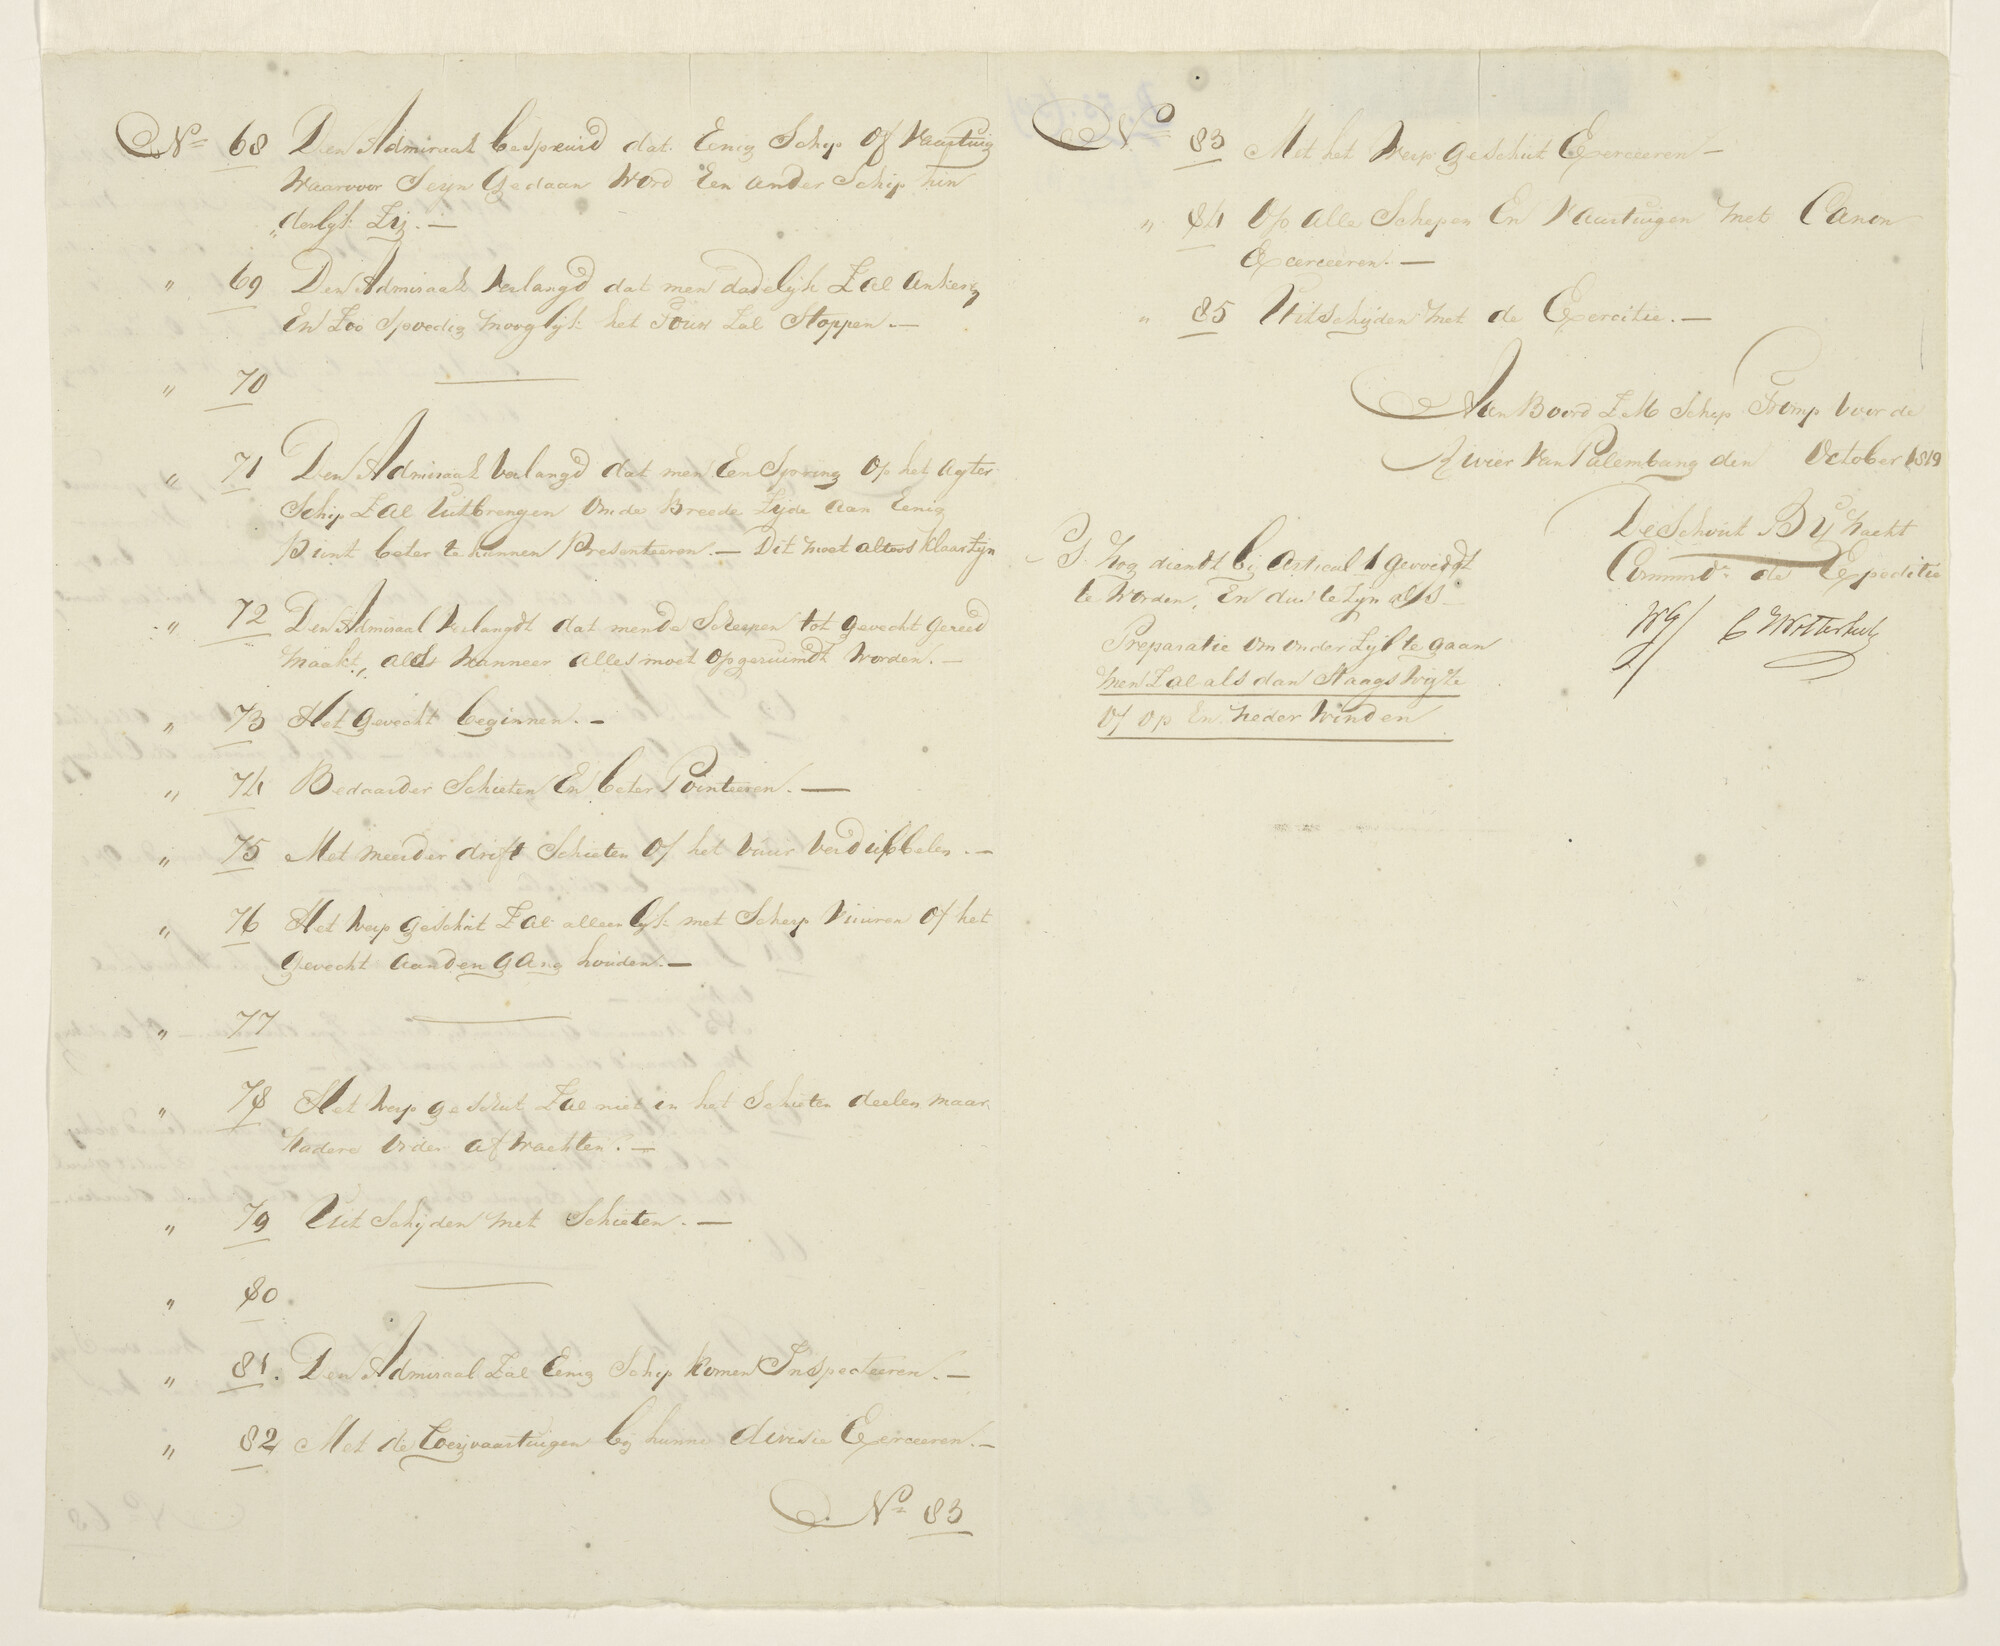 No 68 Den Admiraal bespeurd dat Enig Schip Of Vaartuig
Waarvoor Seijn Gedaan Word Een ander Schip hin
„derlijk Lig. —
„ 69 Den Admiraal Verlangd dat men dadelijk Zal ankeren
En Zoo Spoedig mooglijk het Touw Zal Stoppen. —
„ 70 ———
„ 71 Den Admiraal Verlangd dat men Een Spring Op het agter
Schip Zal Uitbrengen Om de Breede Zijde aan Eenig
Punt beter te kunnen Presenteeren. — Dit moet altoos Klaar Zijn
„ 72 Den Admiraal Verlangdt dat men de Scheepen tot gevecht gereed
maakt„ als Wanneer alles moet Opgeruimdt Worden. —
„ 73 Het Gevecht beginnen. —
„ 74 Bedaarder Schieten En beter Pointeeren. —
„ 75 Met meerder drift Schieten Of het Vuur Verdubbelen. —
„ 76 Het Werp geschut Zal alleenlijk met Scherp Vuuren Of het
Gevecht aan den gang houden. —
„ 77 ———
„ 78 Het Werp geschut Zal niet in het Schieten deelen maar
Nadere Order afwachten. —
„ 79 Uit Schijden met Schieten. —
„ 80 ———
„ 81. Den Admiraal Zal Eenig Schip Komen Inspecteeren. —
„ 82 Met de Roeijvaartuigen bij hunne divisie Exerceeren. —
No 83
No 83 Met het Werp geschut Exerceeren —
„ 84 Op alle Schepen En Vaartuigen met Canon
Exerceeren. —
„ 85 Uitschijden met de Exercitie. —
Aan Boord Z M Schip Tromp voor de
Rivier Van Palembang den October 1819
De Schout Bij Nacht
Commdt de Expeditie
Wg/ C Wolterbeek
P.S. Nog diendt bij Articul 1 gevoegdt
te Worden, En dus te Zijn als
Preparatie om onder Zijl te gaan
men Zal als dan Staagswijze
Of op En neder Winden